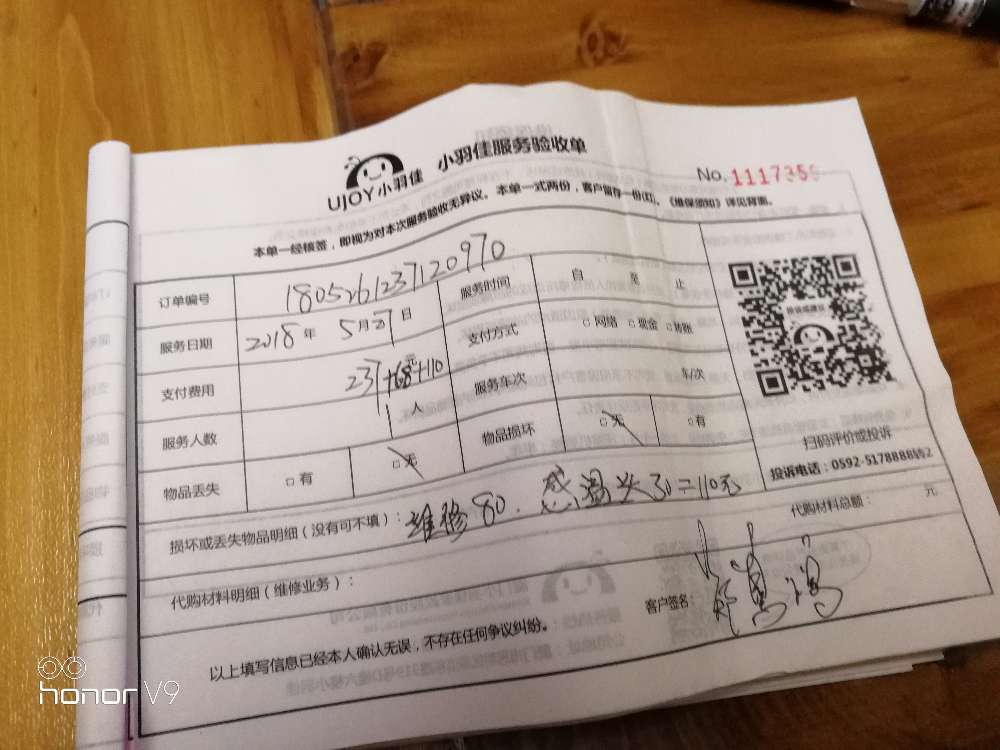 UJOY小羽佳
小羽佳服务验收单
No. 1117356
本单一经核签，即视为对本次服务验收无异议。本单一式两份，客户留存一份(红)。《维保须知》详见背面。
订单编号 1805261237120970
服务时间 自 至 止
服务日期 2018年 5月 日
支付方式 □网络 □现金 □转账
支付费用 231+68元+110
服务车次 车/次
服务人数 1人
物品损坏 □无 □有
物品丢失 □有 □无
扫码评价或投诉
投诉电话：0592-5178888转2
损坏或丢失物品明细（没有可不填）：维修80、感温头30=110元
代购材料总额： 元
代购材料明细（维修业务）：
客户签名：
以上填写信息已经本人确认无误，不存在任何争议纠纷。
honor V9